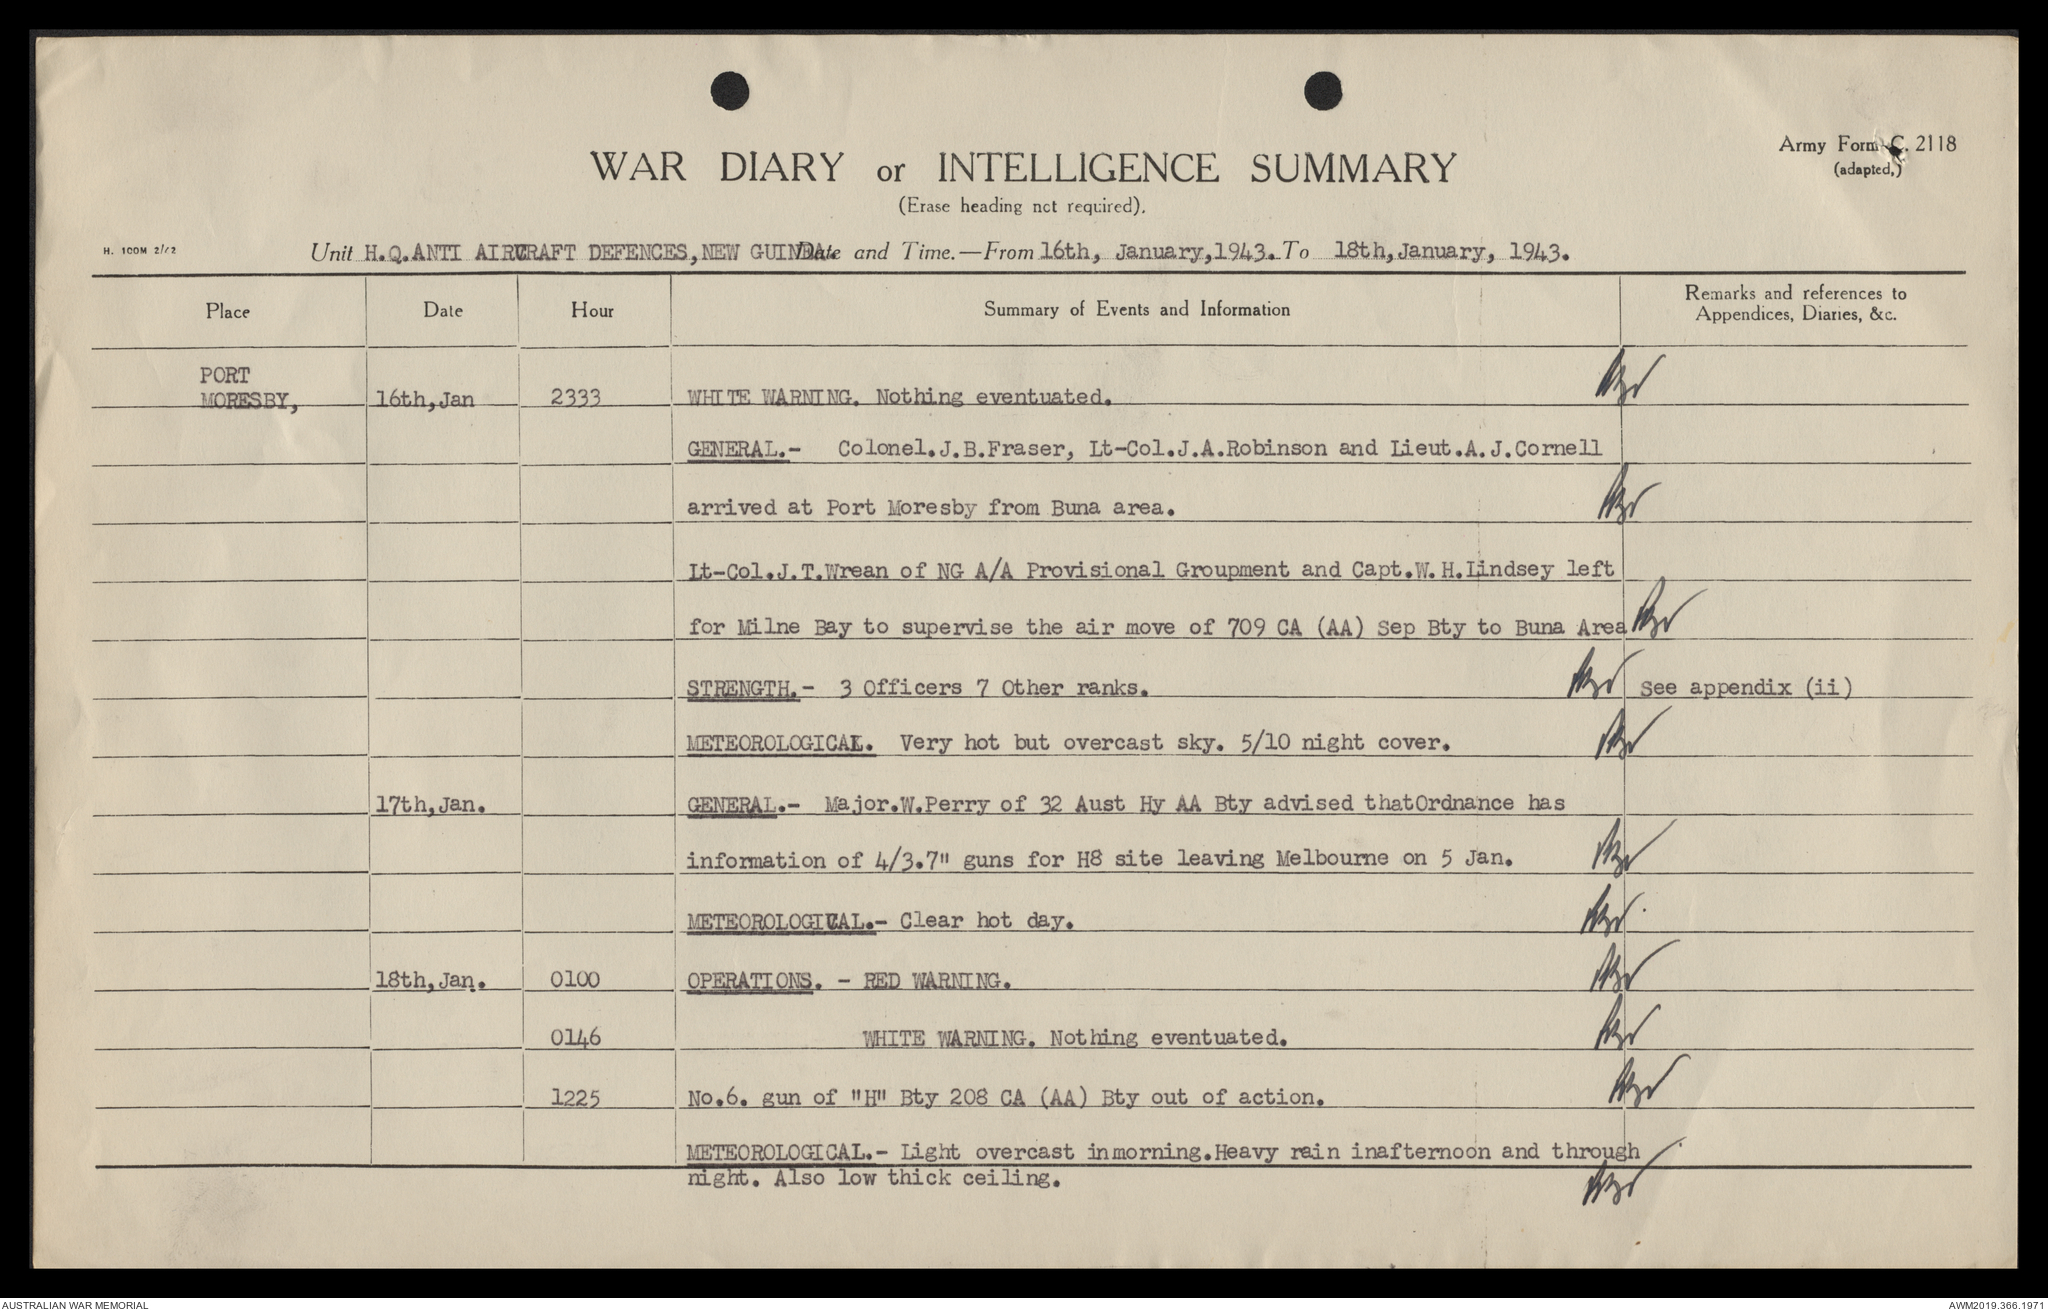 Army Form C. 2118
(adapted,)
WAR DIARY or INTELLIGENCE SUMMARY
(Erase heading not required).
H. 100M 2/42
Unit H.Q.ANTI AIRCRAFT DEFENCES,NEW GUINEA. Date and Time.—From 16th, January,1943. To 18th,January, 1943.
Place Date Hour Summary of Events and Information Remarks and references to
Appendices, Diaries, &c.
PORT
MORESBY, 16th,Jan 2333 WHITE WARNING. Nothing eventuated.
GENERAL.- Colonel.J.B.Fraser, Lt-Col.J.A.Robinson and Lieut.A.J.Cornell
arrived at Port Moresby from Buna area.
Lt-Col.J.T.Wrean of NG A/A Provisional Groupment and Capt.W.H.Lindsey left
for Milne Bay to supervise the air move of 709 CA (AA) Sep Bty to Buna Area
STRENGTH.- 3 Officers 7 Other ranks. See appendix (ii)
METEOROLOGICAL. Very hot but overcast sky. 5/10 night cover.
17th,Jan. GENERAL.- Major.W.Perry of 32 Aust Hy AA Bty advised thatOrdnance has
information of 4/3.7" guns for H8 site leaving Melbourne on 5 Jan.
METEOROLOGICAL.- Clear hot day.
18th,Jan. 0100 OPERATIONS. - RED WARNING.
0146 WHITE WARNING. Nothing eventuated.
1225 No.6. gun of "H" Bty 208 CA (AA) Bty out of action.
METEOROLOGICAL.- Light overcast inmorning.Heavy rain inafternoon and through
night. Also low thick ceiling.
AUSTRALIAN WAR MEMORIAL AWM2019.366.1971